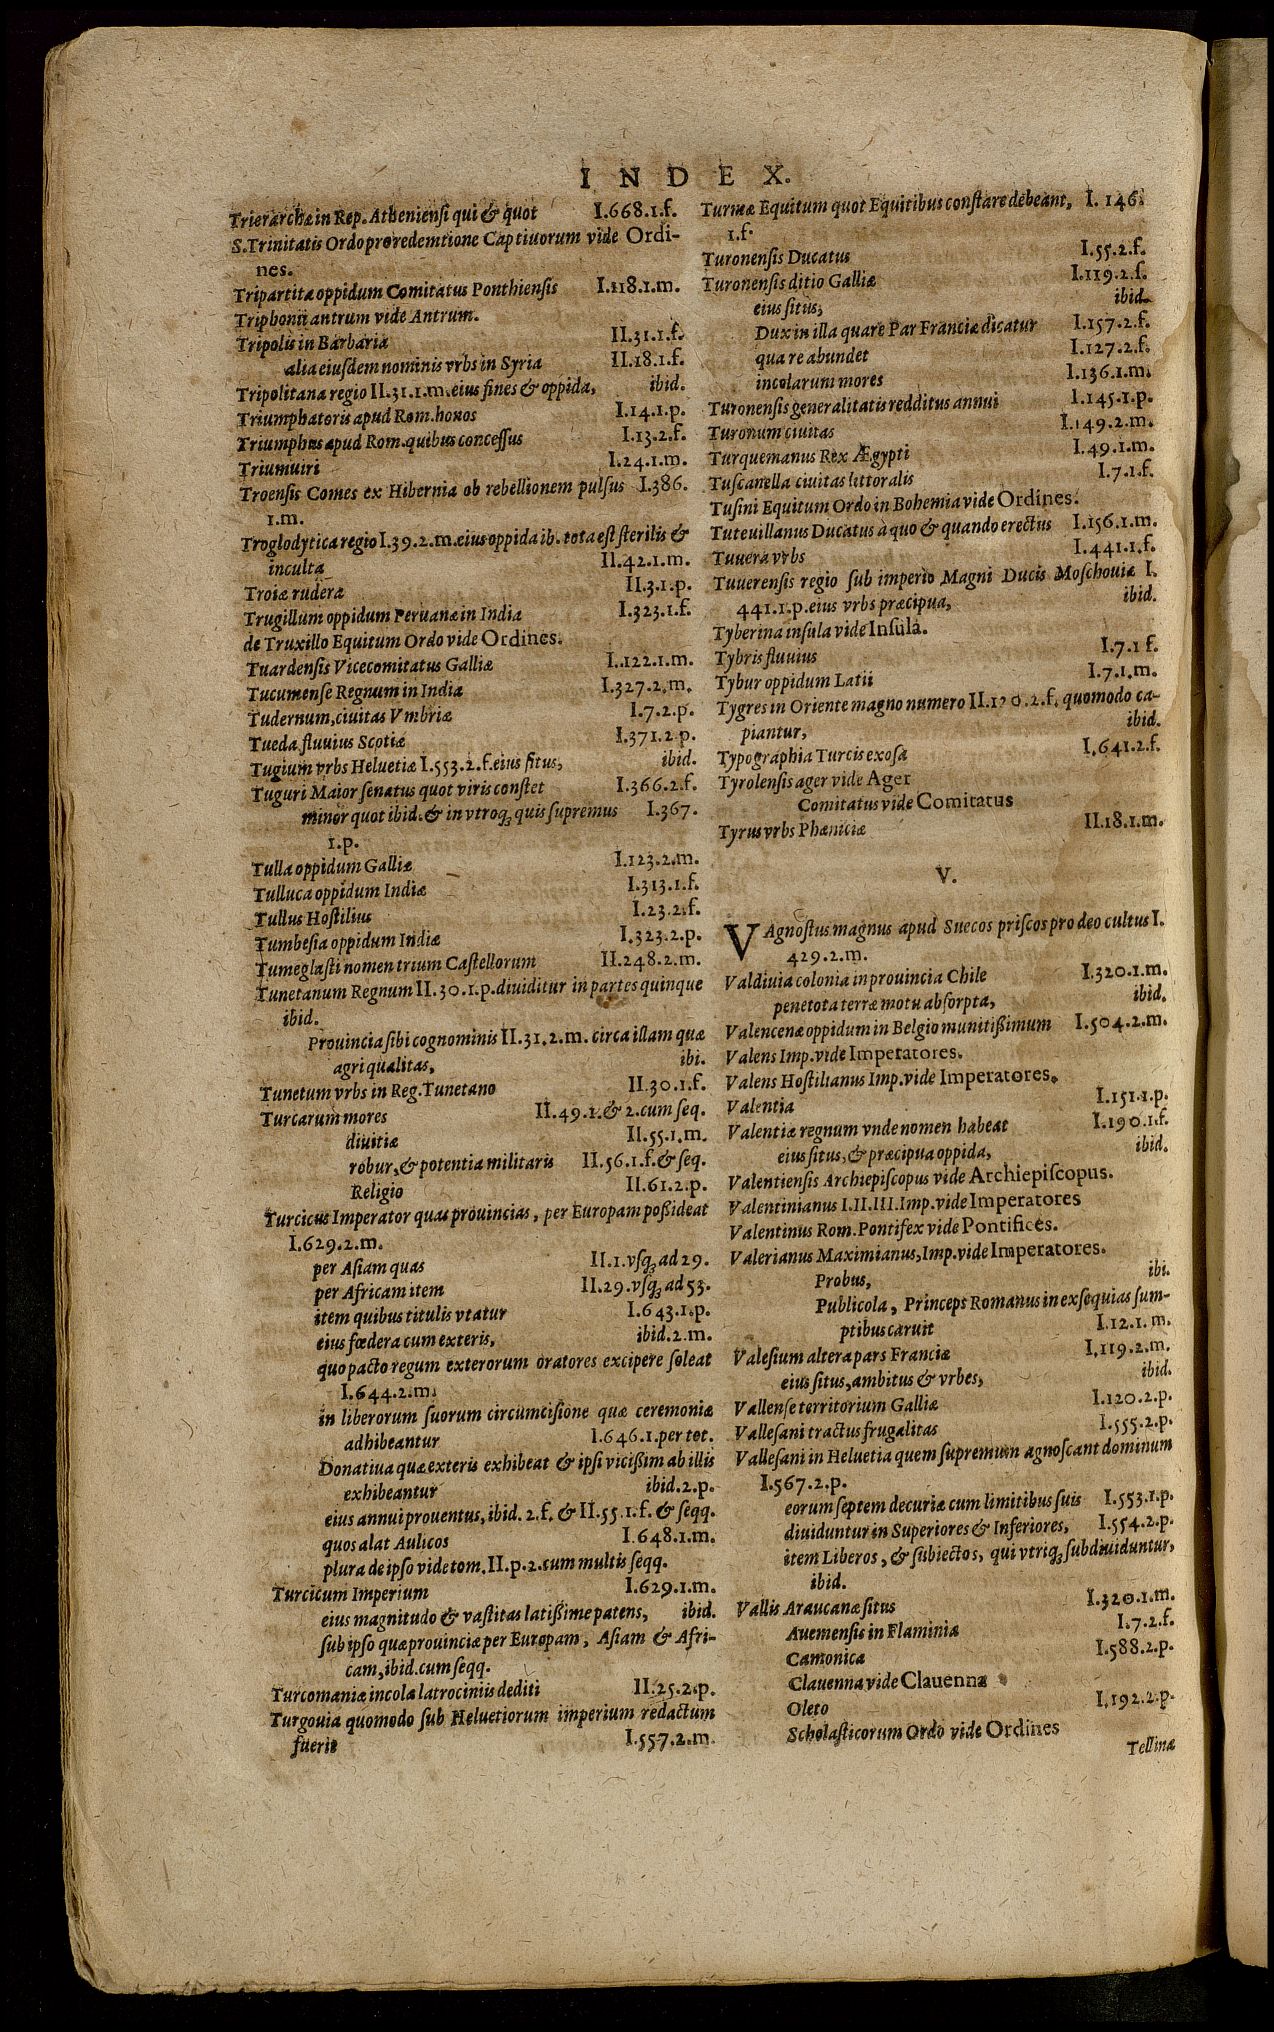 INDEX.
Trierarchæ in Rep. Atheniensi qui & quot I.668.1.f.
S. Trinitatis Ordo pro redemtione Captiuorum vide Ordi-
nes.
Tripartitæ oppidum Comitatus Ponthiensis I.118.1.m.
Triphonii antrum vide Antrum.
Tripolis in Barbaria II.31.1.f.
alia eiusdem nominis vrbs in Syria II.18.1.f.
Tripolitana regio II.31.1.m. eius fines & oppida, ibid.
Triumphatoris apud Rom. honos I.14.1.p.
Triumphus apud Rom. quibus concessus I.13.2.f.
Triumuiri I.24.1.m.
Troensis Comes ex Hibernia ob rebellionem pulsus I.386.
1.m.
Troglodytica regio I.39.2.m. eius oppida ib. tota est sterilis &
inculta II.42.1.m.
Troiæ rudera II.3.1.p.
Trugillum oppidum Peruanæ in India I.323.1.f.
de Truxillo Equitum Ordo vide Ordines.
Tuardensis Vicecomitatus Galliæ I.122.1.m.
Tucumense Regnum in India I.327.2.m.
Tudernum, ciuitas Vmbriæ I.7.2.p.
Tueda fluuius Scotiæ I.371.2.p.
Tugium vrbs Heluetiæ I.553.2.f. eius situs, ibid.
Tuguri Maior senatus quot viris constet I.366.2.f.
minor quot ibid. & in vtroq; quis supremus I.367.
1.p.
Tulla oppidum Galliæ I.123.2.m.
Tulluca oppidum Indiæ I.313.1.f.
Tullus Hostilius I.23.2.f.
Tumbesia oppidum Indiæ I.323.2.p.
Tumeglasti nomen trium Castellorum II.248.2.m.
Tunetanum Regnum II.30.1.p. diuiditur in partes quinque
ibid.
Prouincia sibi cognominis II.31.2.m. circa illam quæ
agri qualitas, ibi.
Tunetum vrbs in Reg. Tunetano II.30.1.f.
Turcarum mores II.49.1.& 2.cum seq.
diuitiæ II.55.1.m.
robur, & potentia militaris II.56.1.f.& seq.
Religio II.61.2.p.
Turcicus Imperator quas prouincias, per Europam possideat
I.629.2.m.
per Asiam quas II.1.vsq; ad 29.
per Africam item II.29.vsq; ad 53.
item quibus titulis vtatur I.643.1.p.
eius fœdera cum exteris, ibid.2.m.
quo pacto regum exterorum oratores excipere soleat
I.644.2.m.
in liberorum suorum circumcisione quæ ceremoniæ
adhibeantur I.646.1.per tot.
Donatiua quæ exteris exhibeat & ipsi vicissim ab illis
exhibeantur ibid.2.p.
eius annui prouentus, ibid. 2.f. & II.55.1.f. & seqq.
quos alat Aulicos I.648.1.m.
plura de ipso vide tom. II.p.2.cum multis seqq.
Turcicum Imperium I.629.1.m.
eius magnitudo & vastitas latissime patens, ibid.
sub ipso quæ prouinciæ per Europam, Asiam & Afri-
cam, ibid.cum seqq.
Turcomaniæ incolæ latrociniis dediti II.25.2.p.
Turgouia quomodo sub Heluetiorum imperium redactum
fuerit I.557.2.m.
Turmæ Equitum quot Equitibus constare debeant, I. 146.
1.f.
Turonensis Ducatus I.55.2.f.
Turonensis ditio Galliæ I.119.2.f.
eius situs, ibid.
Dux in illa quare Par Franciæ dicatur I.157.2.f.
qua re abundet I.127.2.f.
incolarum mores I.136.1.m.
Turonensis generalitatis redditus annui I.145.1.p.
Turonum ciuitas I.149.2.m.
Turquemanus Rex Ægypti I.49.1.m.
Tuscanella ciuitas littoralis I.7.1.f.
Tusini Equitum Ordo in Bohemia vide Ordines.
Tuteuillanus Ducatus à quo & quando erectus I.156.1.m.
Tuuera vrbs I.441.1.f.
Tuuerensis regio sub imperio Magni Ducis Moschouiæ I.
441.1.p. eius vrbs præcipua, ibid.
Tyberina insula vide Insula.
Tybris fluuius I.7.1 f.
Tybur oppidum Latii I.7.1.m.
Tygres in Oriente magno numero II.170.2.f. quomodo ca-
piantur, ibid.
Typographia Turcis exosa I.641.2.f.
Tyrolensis ager vide Ager
Comitatus vide Comitatus
Tyrus vrbs Phæniciæ II.18.1.m.
V.
VAgnostus magnus apud Suecos priscos pro deo cultus I.
429.2.m.
Valdiuia colonia in prouincia Chile I.320.1.m.
pene tota terræ motu absorpta, ibid.
Valencenæ oppidum in Belgio munitissimum I.504.2.m.
Valens Imp. vide Imperatores.
Valens Hostilianus Imp. vide Imperatores.
Valentia I.151.1.p.
Valentiæ regnum vnde nomen habeat I.190.1.f.
eius situs, & præcipua oppida, ibid.
Valentiensis Archiepiscopus vide Archiepiscopus.
Valentinianus I.II.III.Imp. vide Imperatores
Valentinus Rom. Pontifex vide Pontifices.
Valerianus Maximianus, Imp. vide Imperatores.
Probus, ibi.
Publicola, Princeps Romanus in exsequias sum-
ptibus caruit I.12.1.m.
Valesium altera pars Franciæ I.119.2.m.
eius situs, ambitus & vrbes, ibid.
Vallense territorium Galliæ I.120.2.p.
Vallesani tractus frugalitas I.555.2.p.
Vallesani in Heluetia quem supremum agnoscant dominum
I.567.2.p.
eorum septem decuriæ cum limitibus suis I.553.1.p.
diuiduntur in Superiores & Inferiores, I.554.2.p.
item Liberos, & subiectos, qui vtriq; subdiuiduntur,
ibid.
Vallis Araucanæ situs I.320.1.m.
Auemensis in Flaminia I.7.2.f.
Camonica I.588.2.p.
Clauenna vide Clauenna
Oleto I.192.2.p.
Scholasticorum Ordo vide Ordines
Tellinæ